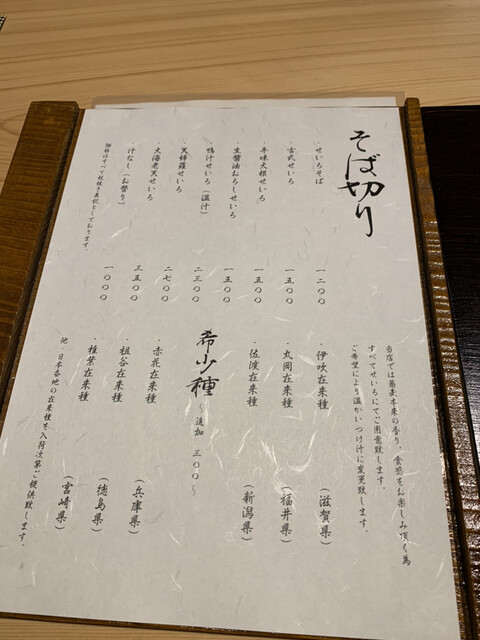 そば切り
・せいろそば 一二〇〇
・古式せいろ 一五〇〇
・辛味大根せいろ 一五〇〇
・生醤油おろしせいろ 一五〇〇
・鴨汁せいろ(温汁) 二三〇〇
・天婦羅せいろ 二七〇〇
・大海老天せいろ 三五〇〇
・汁なし(お替り) 一〇〇〇
価格はすべて税抜き表記としております。
当店では蕎麦本来の香り、食感をお楽しみ頂く為
すべてせいろにてご用意致します。
ご希望により温かいつけ汁に変更致します。
希少種 ~追加 三〇〇~
・伊吹在来種 (滋賀県)
・丸岡在来種 (福井県)
・佐渡在来種 (新潟県)
・赤花在来種 (兵庫県)
・祖谷在来種 (徳島県)
・椎葉在来種 (宮崎県)
他、日本各地の在来種を入荷次第ご提供致します。